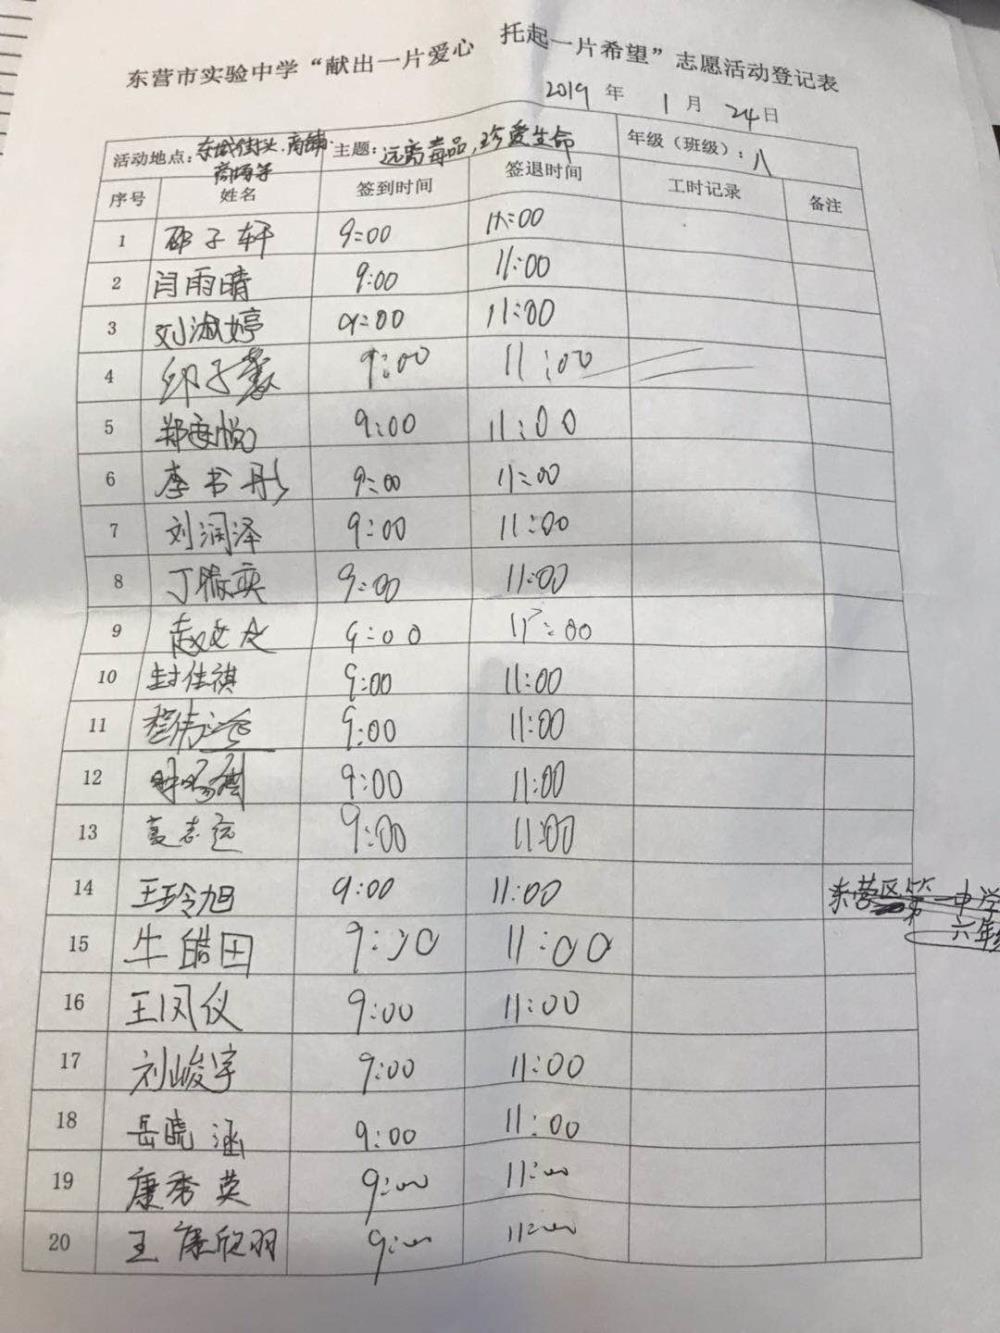 东营市实验中学“献出一片爱心 托起一片希望”志愿活动登记表
2019 年 1 月 24 日
活动地点：东城街头、商铺、商场等 主题：远离毒品，珍爱生命 年级（班级）：八
序号 姓名 签到时间 签退时间 工时记录 备注
1 邵子轩 9:00 11:00
2 闫雨晴 9:00 11:00
3 刘淑婷 9:00 11:00
4 子 9:00 11:00
5 郑 悦 9:00 11:00
6 李书彤 9:00 11:00
7 刘润泽 9:00 11:00
8 丁 奕 9:00 11:00
9 赵文 9:00 11:00
10 封佳祺 9:00 11:00
11 9:00 11:00
12 9:00 11:00
13 夏志远 9:00 11:00
14 王玲旭 9:00 11:00 东营区第一中学
六年级
15 牛皓田 9:00 11:00
16 王凤仪 9:00 11:00
17 刘峻宇 9:00 11:00
18 岳晓涵 9:00 11:00
19 康秀英 9:00 11:00
20 王康欣羽 9:00 11:00